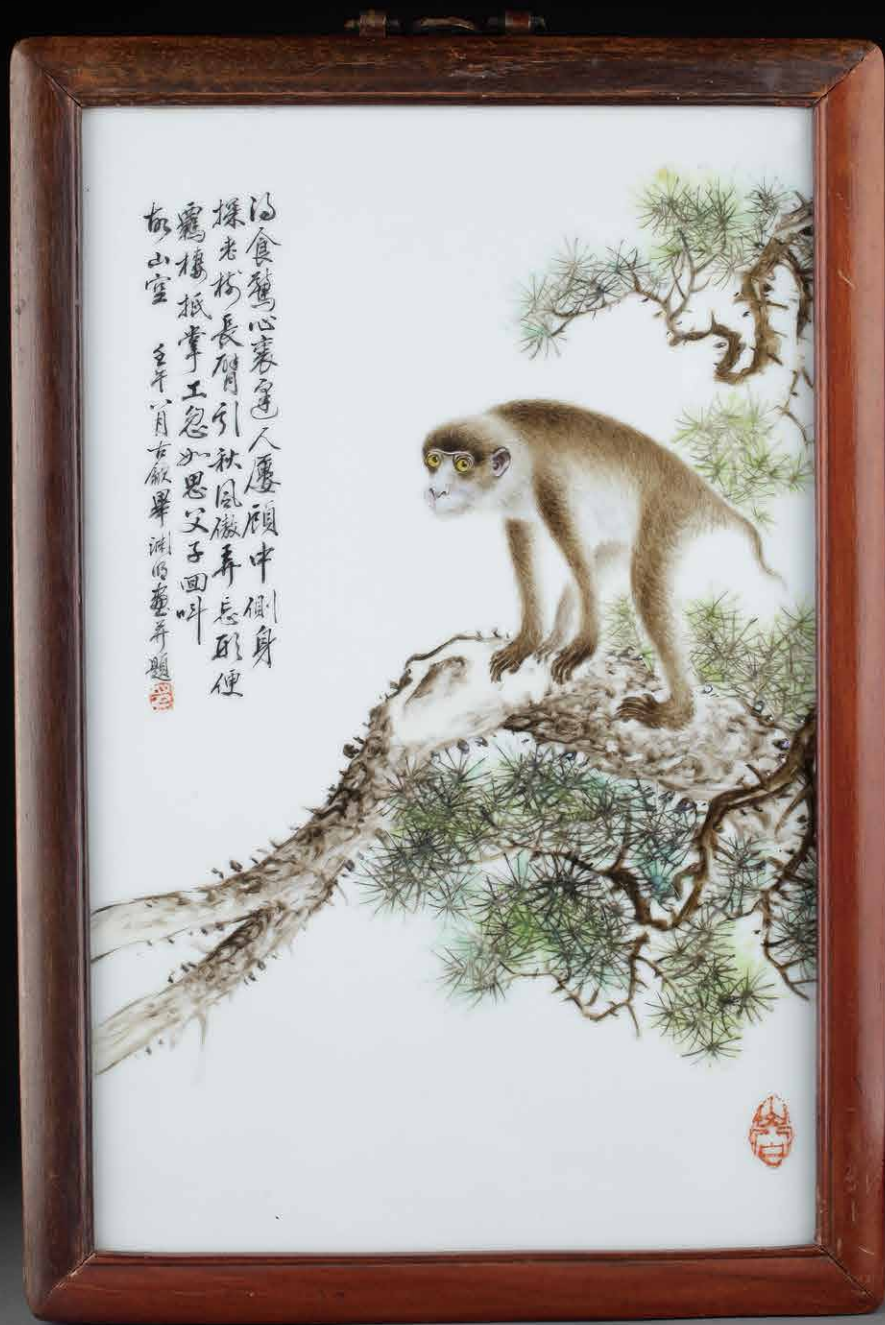 得食驚心裏逢人屢顧中側身
探老樹長臂引秋風傲弄忘形便
羈棲抵掌工忽如思父子回叫
故山空
壬午八月古歙畢淵明畫并題